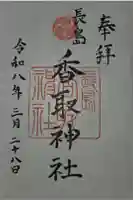 奉拝
長島
香取神社
令和八年三月二十八日